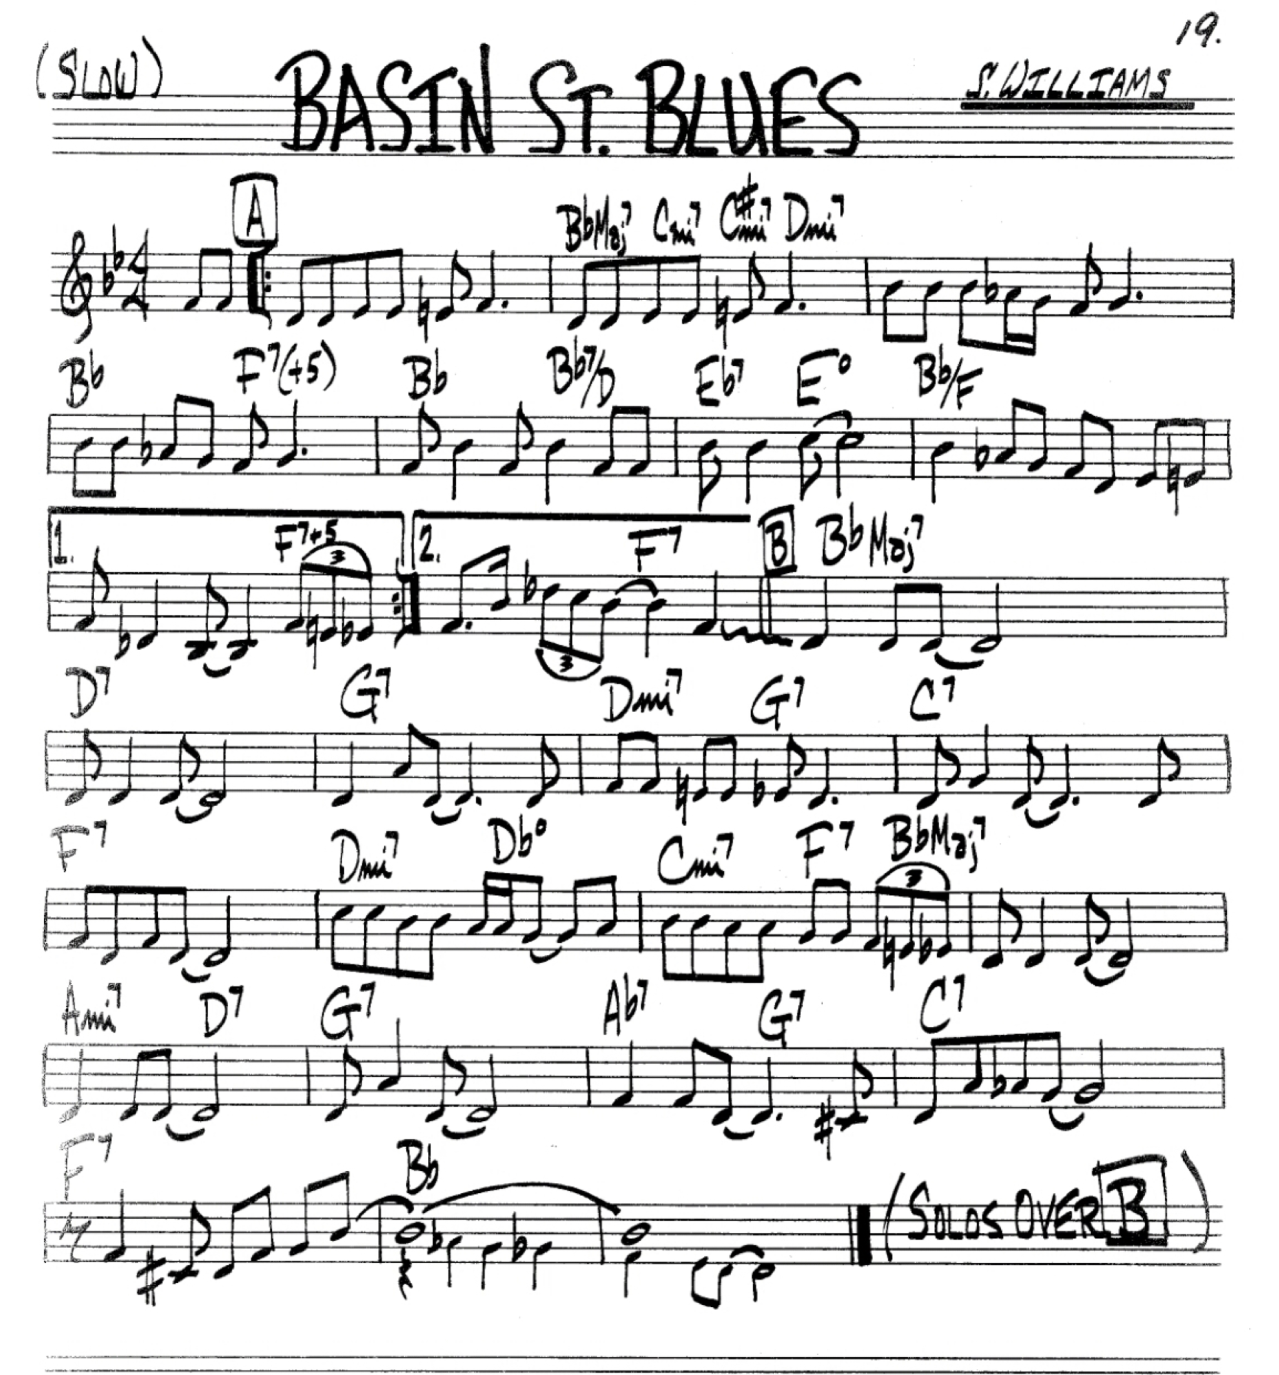 19.
(SLOW)
BASIN ST. BLUES
S. WILLIAMS
A
BbMaj7 Cmi7 C#mi7 Dmi7
4
4
Bb F7(+5) Bb Bb7/D Eb7 E° Bb/F
1. F7+5 2. F7 B BbMaj7
3
3
D7 G7 Dmi7 G7 C7
F7 Dmi7 Db° Cmi7 F7 BbMaj7
3
Ami7 D7 G7 Ab7 G7 C7
F7 Bb
(SOLOS OVER B)